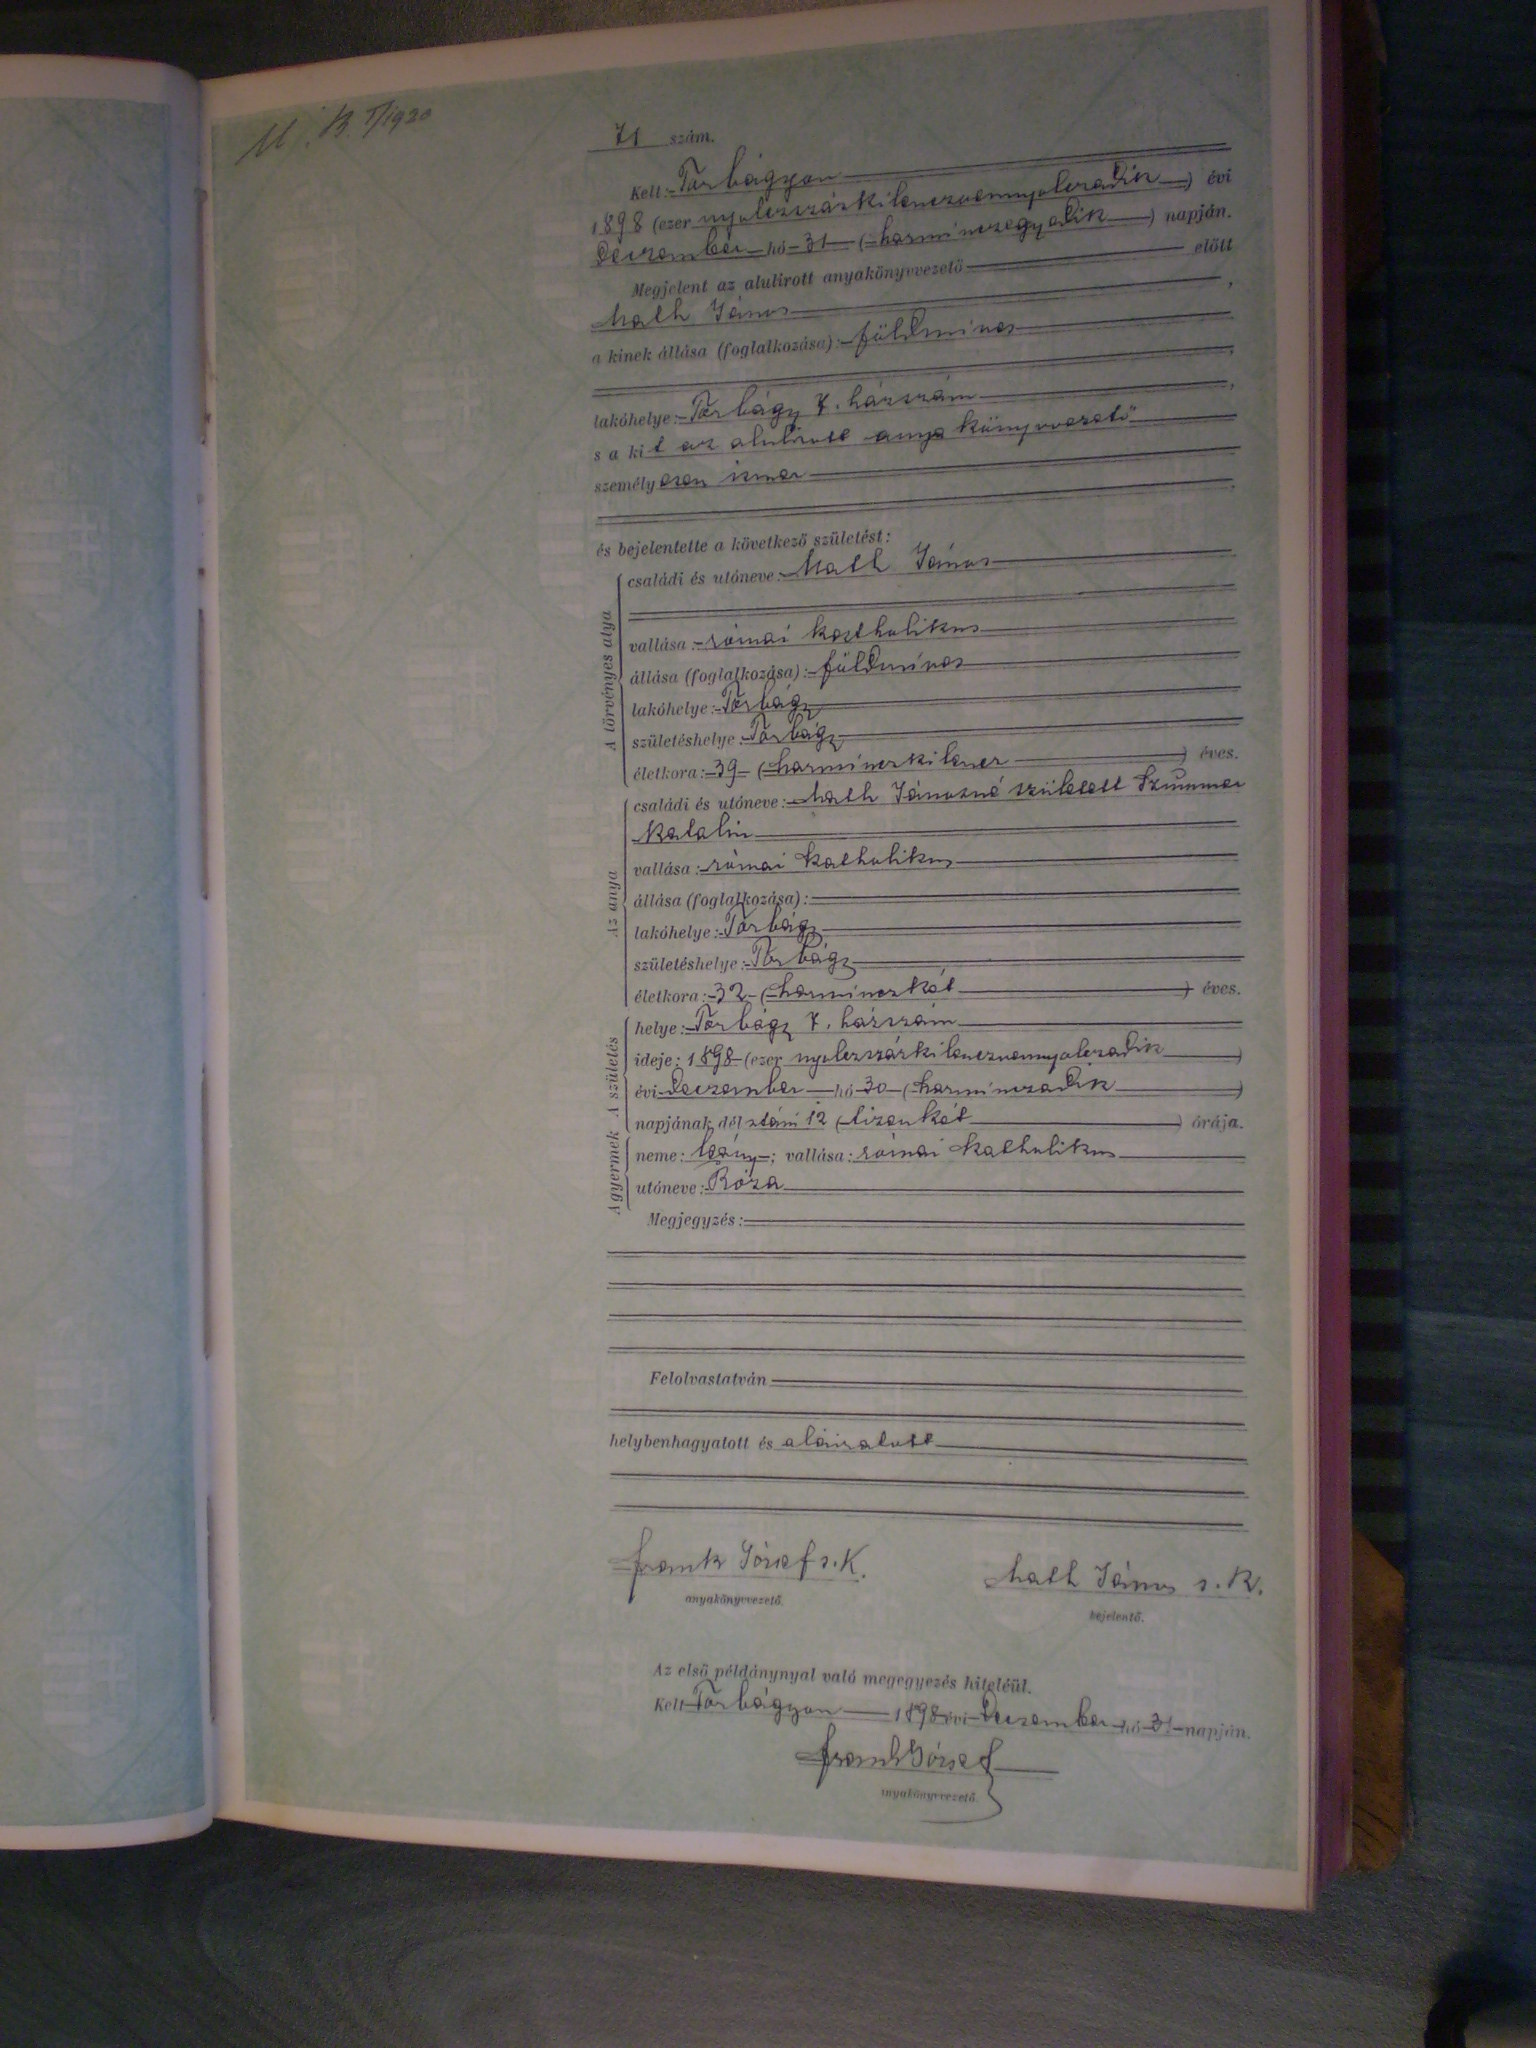 M. B. I/1920
71 szám.
Kelt: Torbágyon
1898 (ezer nyolczszázkilenczvennyolczadik) évi
deczember hó 31 (harminczegyedik) napján.
Megjelent az alulirott anyakönyvvezető előtt
Math János,
a kinek állása (foglalkozása): földmíves
lakóhelye: Torbágy 7. házszám,
s a kit az alulirott anyakönyvvezető
személyesen ismer
és bejelentette a következő születést:
A törvényes atya
családi és utóneve: Math János
vallása: római katholikus
állása (foglalkozása): földmíves
lakóhelye: Torbágy
születéshelye: Torbágy
életkora: 39 (harminczkilencz) éves.
Az anya
családi és utóneve: Math Jánosné született
Katalin
vallása: római katholikus
állása (foglalkozása):
lakóhelye: Torbágy
születéshelye: Torbágy
életkora: 32 (harminczkét) éves.
A születés
helye: Torbágy 7. házszám
ideje: 1898 (ezer nyolczszázkilenczvennyolczadik)
évi deczember hó 30 (harminczadik)
napjának délutáni 12 (tizenkét) órája.
A gyermek
neme: leány; vallása: római katholikus
utóneve: Róza
Megjegyzés:
Felolvastatván
helybenhagyatott és aláiratott
Frank József s. k. Math János s. k.
anyakönyvvezető. bejelentő.
Az első példánynyal való megegyezés hiteléül.
Kelt Torbágyon 1898 évi deczember hó 31 napján.
Frank József
anyakönyvvezető.